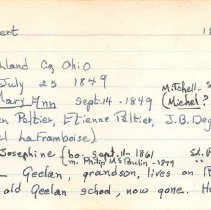 ert 18
hland Co, Ohio
July 23 1849
Mitchell - S
Mary Ann Sept. 14 - 1849 (Michel?
n Peltier, Etienne Peltier, J.B. Deg
el LaFramboise)
Josephine (bo. Sept. 11 - 1861
m. Philip McPaulin - 1879
- Geelan, grandson, lives on R
old Geelan school, now gone. H